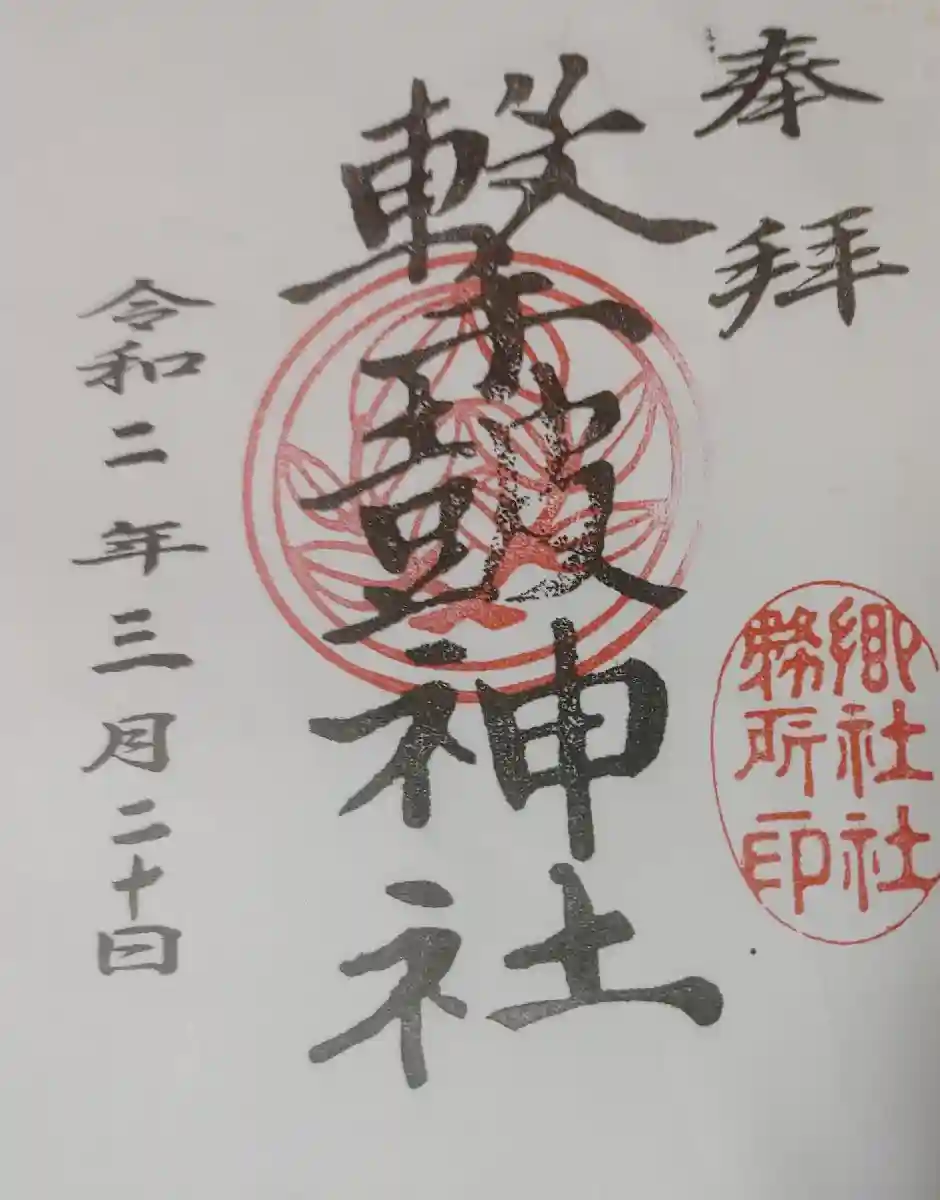 奉拝
郷社社
務所印
撃皷神社
令和二年三月二十日